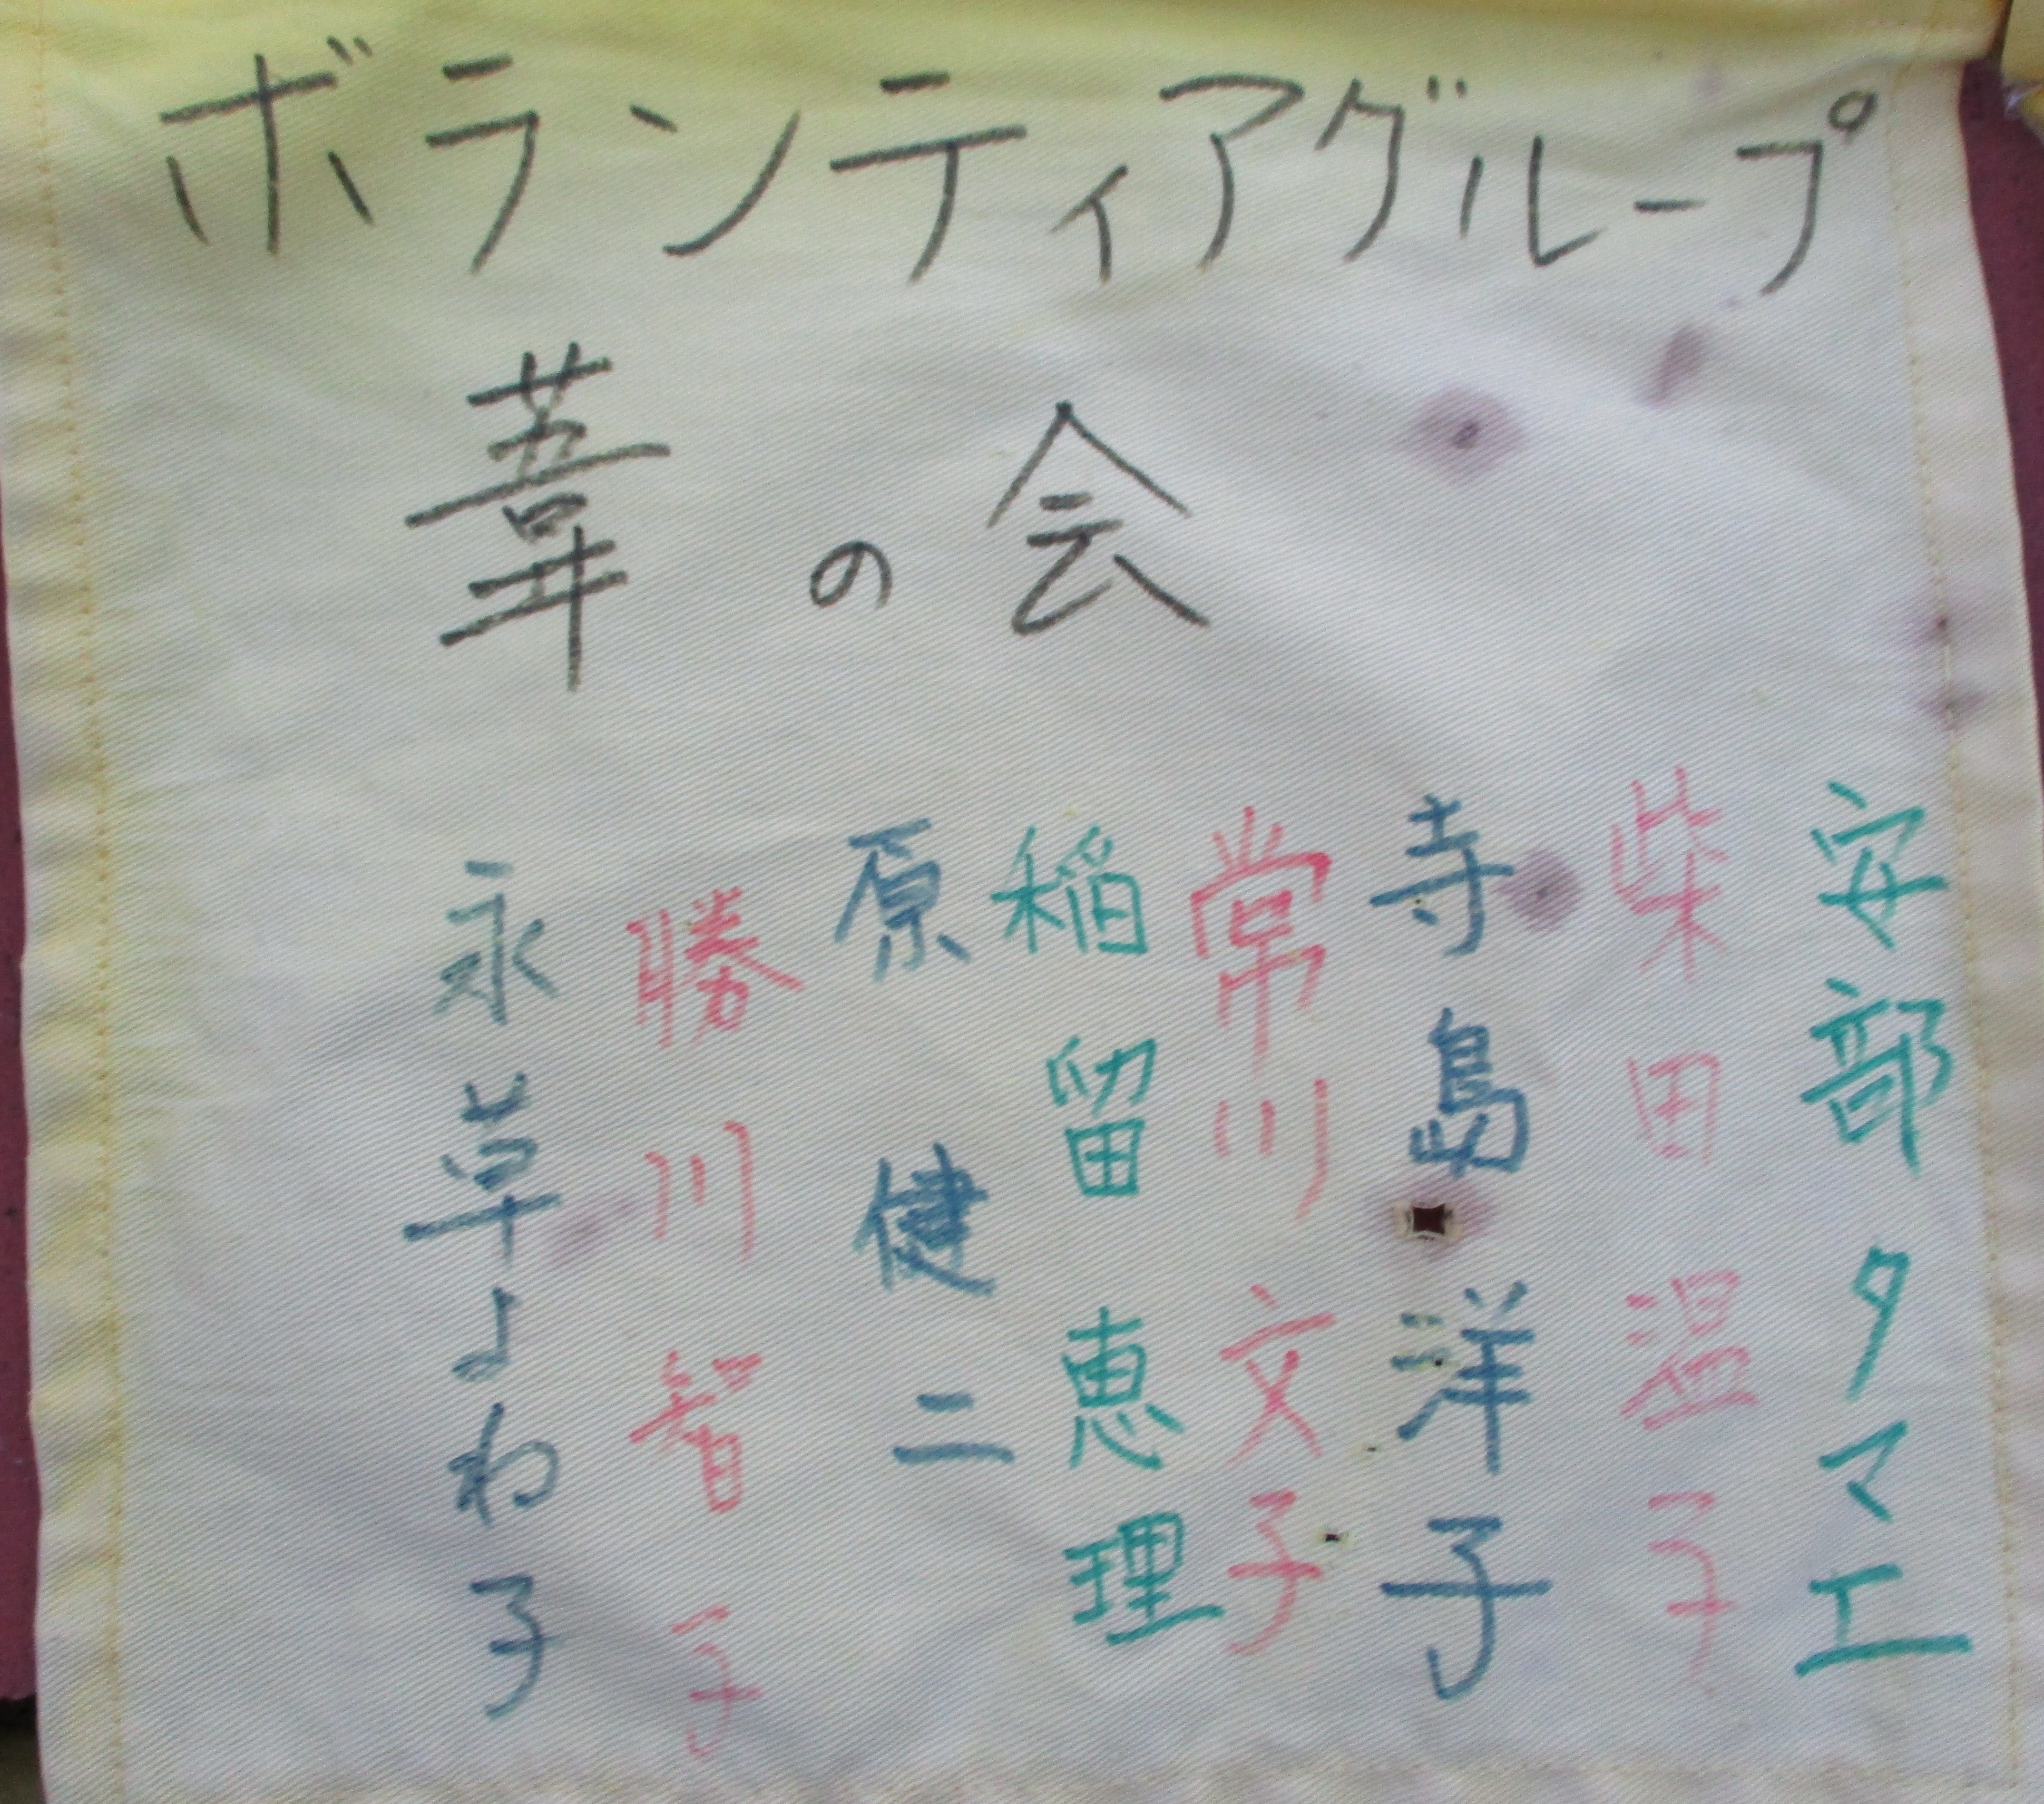 ボランティアグループ
葦の会
安部タマエ
柴田温子
寺島洋子
常川文子
稲留恵理
原健二
勝川智子
永草よね子